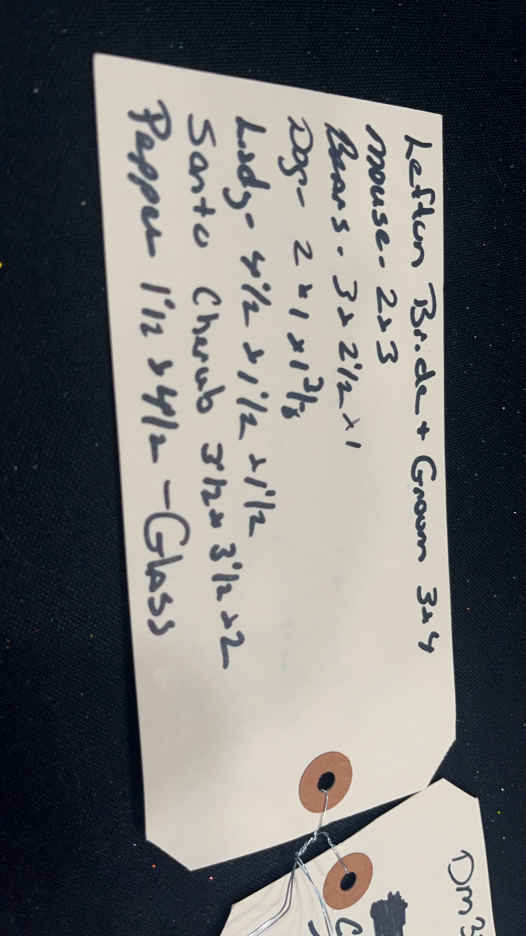 Lefton Bride + Groom 3x4
Mouse- 2x3
Bears- 3x2 1/2 x1
Dog- 2 x1 x1 3/8
Lady- 4 1/2 x1 1/2 x1 1/2
Santa Cherub 3 1/2x 3 1/2 x2
Pepper 1 1/2 x 4 1/2 -Glass